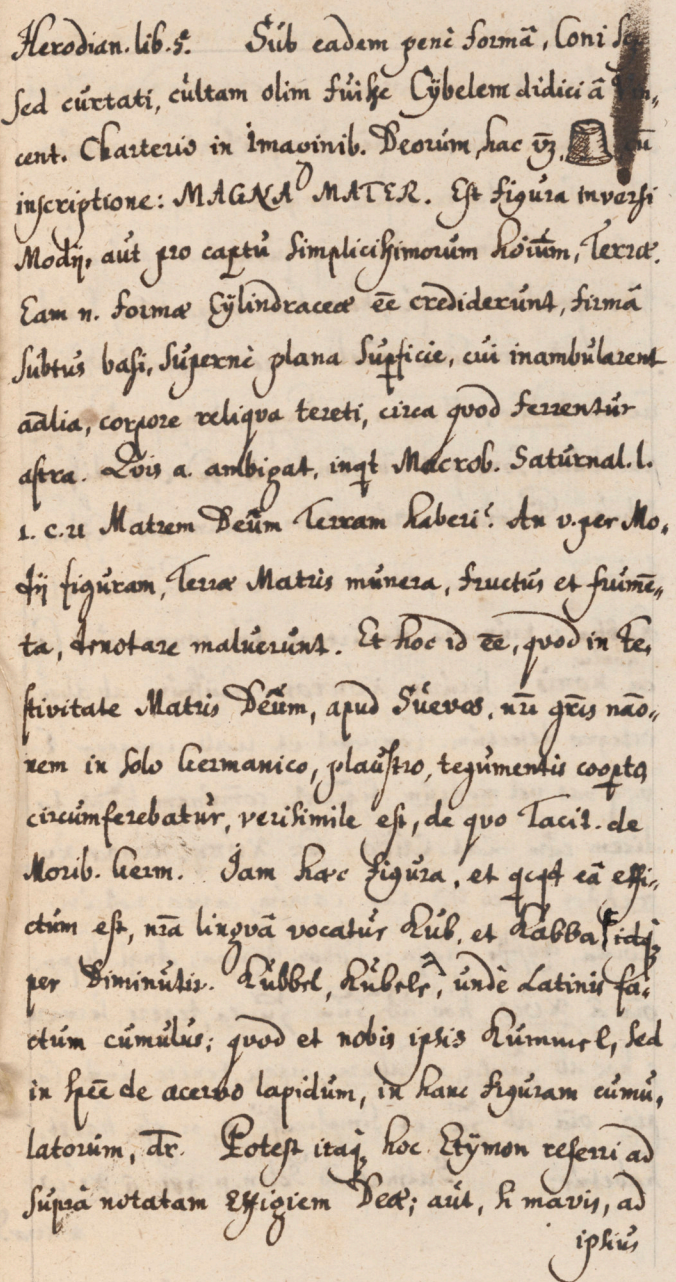 Herodian. lib. 5. Sub eadem penè formâ, Coni
sed curtati, cultam olim fuisse Cybelem didici â Vin-
cent. Charterio in Imaginib. Deorum, hac vz. cū
inscriptione: MAGNA MATER. Est figura inversi
Modij, aut pro captu simplicissimorum hoīum, Terræ.
Eam n. formæ Cylindraceæ eē crediderunt, firmâ
subtus basi, supernè plana supficie, cui inambularent
aālia, corpore reliquo tereti, circa quod ferrentur
astra. Quis a. ambigat, inqt Macrob. Saturnal. l.
1. c. 21 Matrem Deûm Terram haberi? An v. per Mo-
dij figuram, Terræ Matris munera, fructus et frumē-
ta, denotare maluerunt. Et hoc id eē, quod in fe-
stivitate Matris Deûm, apud Suevos, nrī gn̄is nāo-
nem in solo Germanico, plaustro, tegumentis coopto
circumferebatur, verisimile est, de quo Tacit. de
Morib. Germ. Jam hæc figura, et qcqd eâ effi-
ctum est, nrâ linguâ vocatur Kub, et Kübba idq;
per Diminutiv. Kübbel, Kübele, undè Latinis fa-
ctum cumulus; quod et nobis ipsis Kummel, sed
in speē de acervo lapidum, in hanc figuram cumu-
latorum, dr. Potest itaq; hoc Etÿmon referri ad
suprà notatam Effigiem Deæ; aut, si mavis, ad
ipsius